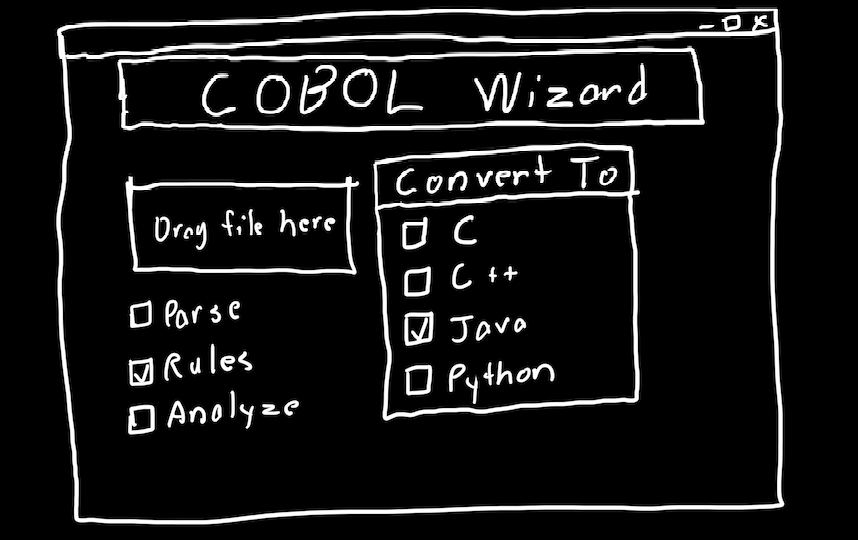 COBOL Wizard
Drag file here
Parse
Rules
Analyze
Convert To
C
C++
Java
Python